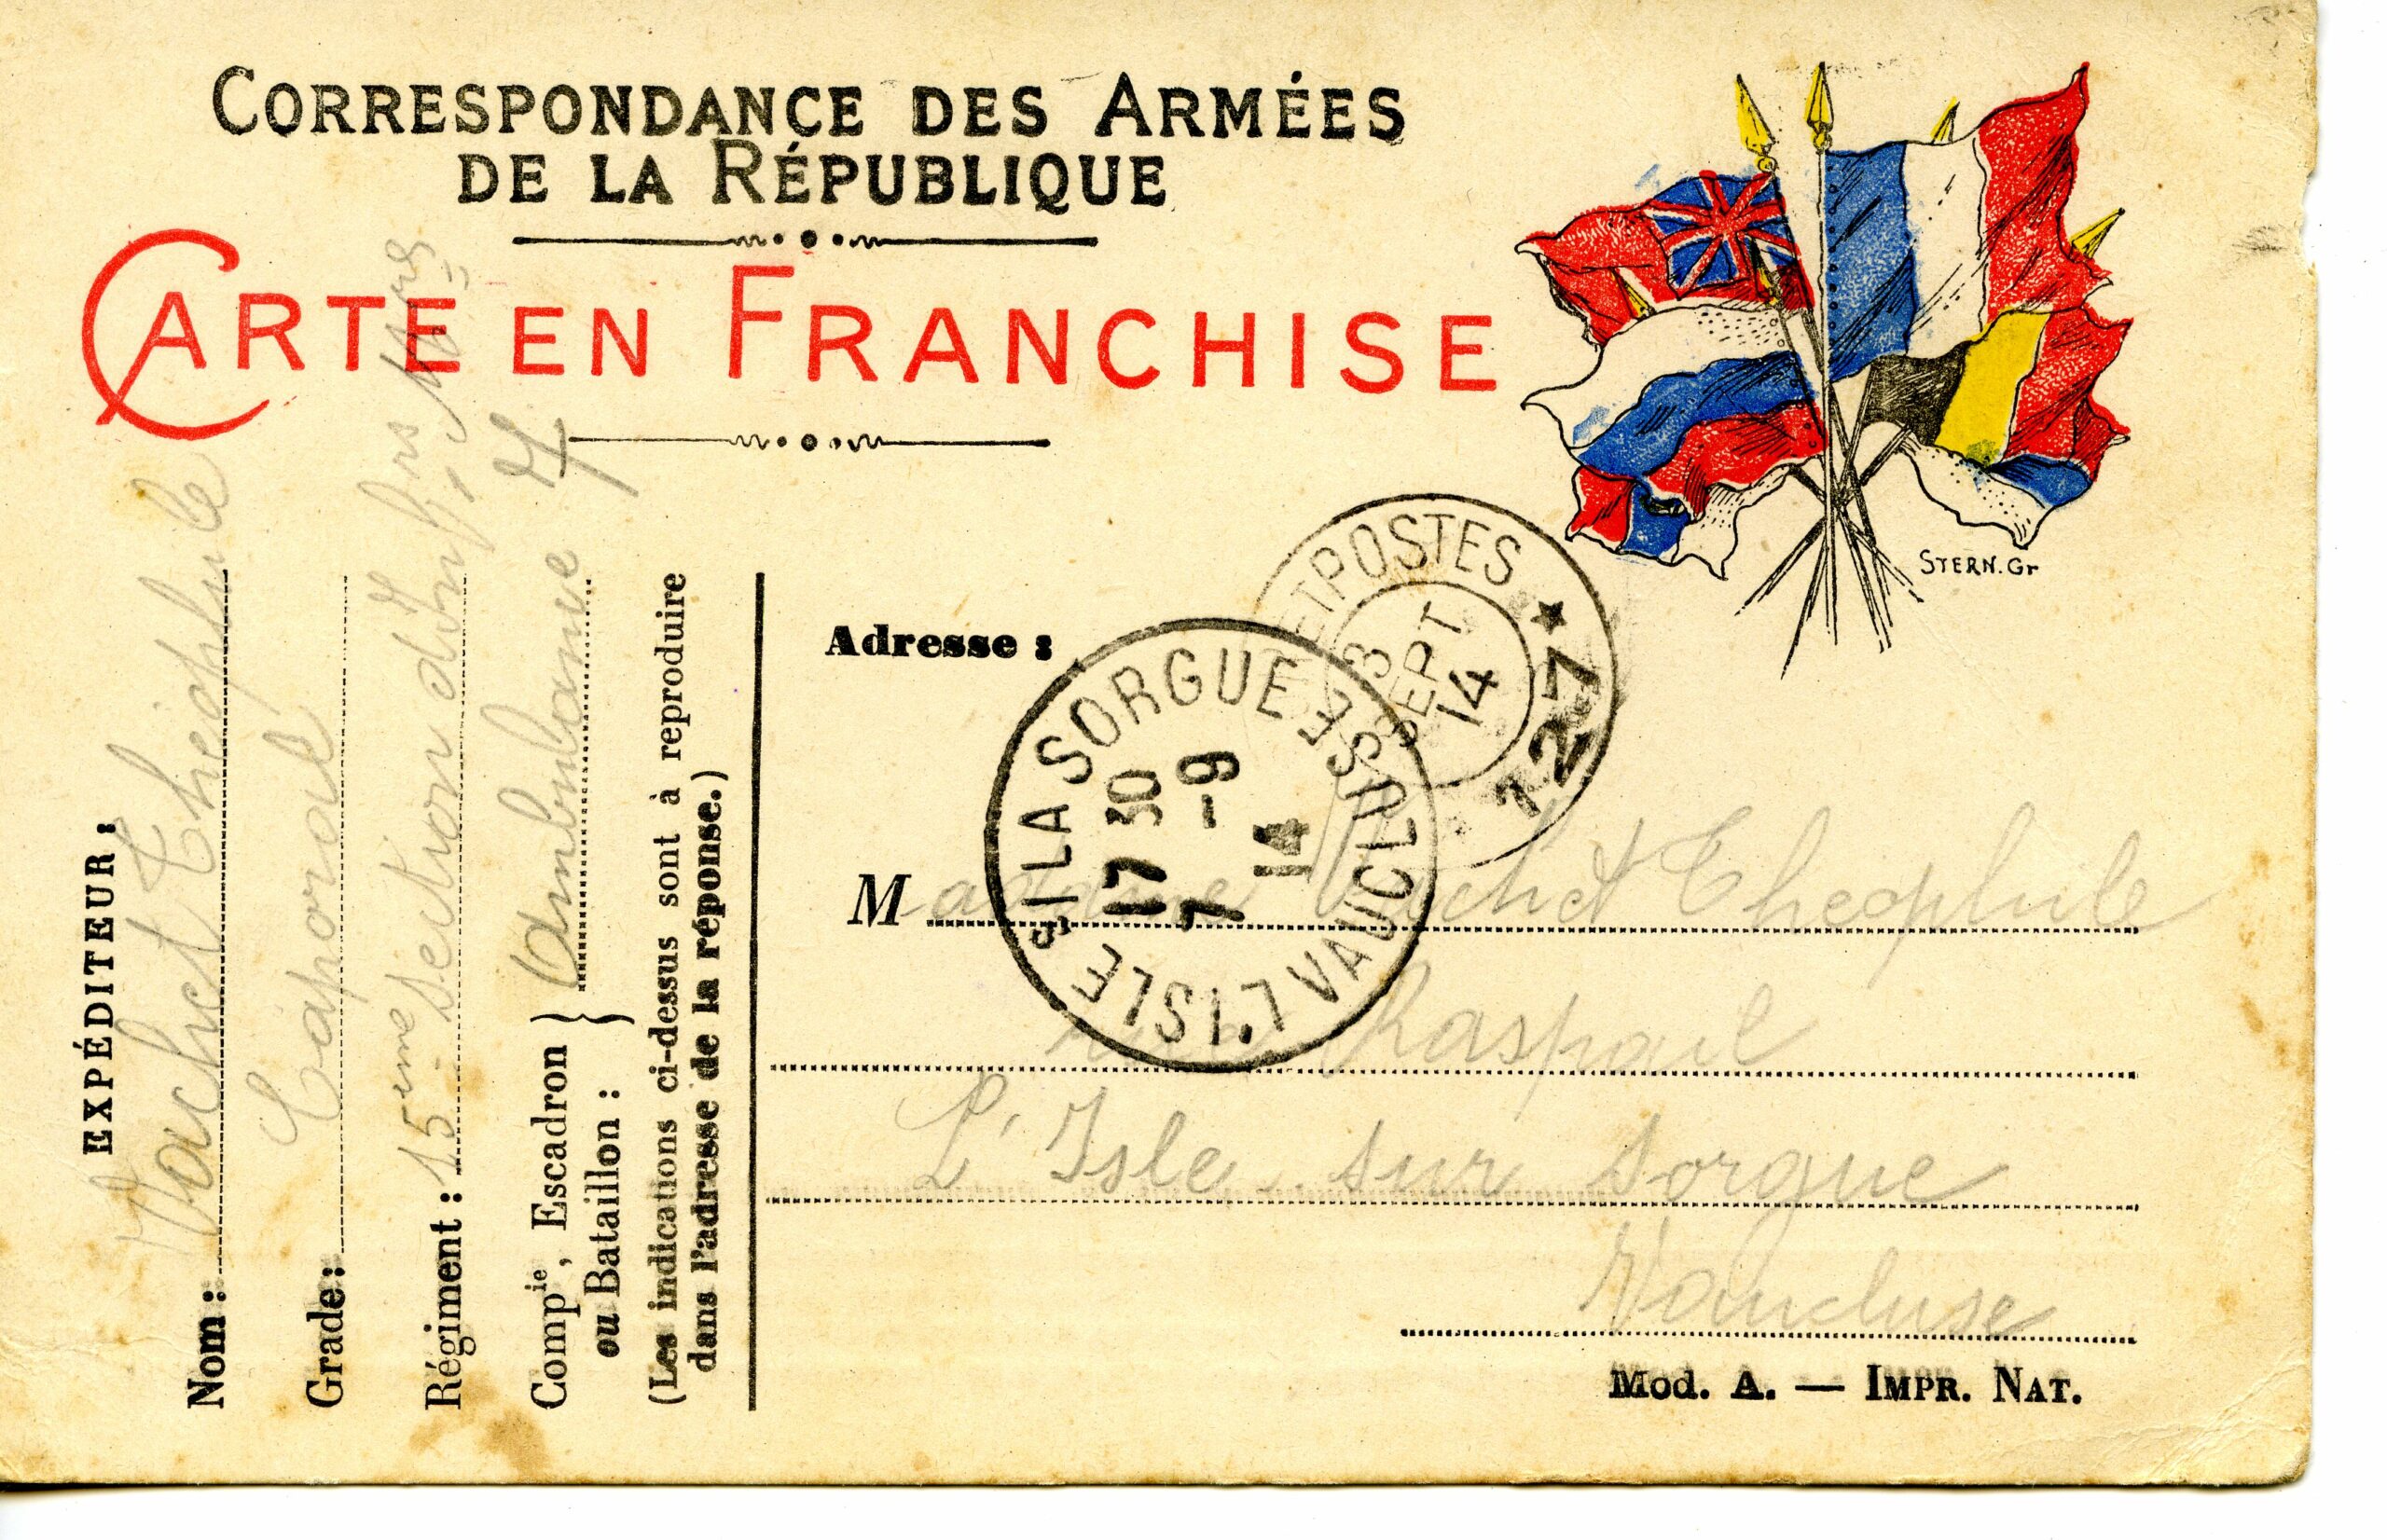 CORRESPONDANCE DES ARMÉES
DE LA RÉPUBLIQUE
CARTE EN FRANCHISE
STERN. Gr
EXPÉDITEUR :
Nom : Vachet Theophile
Grade : Caporal
Régiment : 15eme section d'Infirs Mres
Compie, Escadron
ou Bataillon : } Ambulance 7
(Les indications ci-dessus sont à reproduire
dans l'adresse de la réponse.)
Adresse :
ET POSTES ★ 127
3
SEPT
14
L'ISLE S/ LA SORGUE VAUCLUSE
17 30
7 -9
14
Madame Vachet Theophile
rue Raspail
L'Isle sur Sorgue
Vaucluse
Mod. A. — IMPR. NAT.